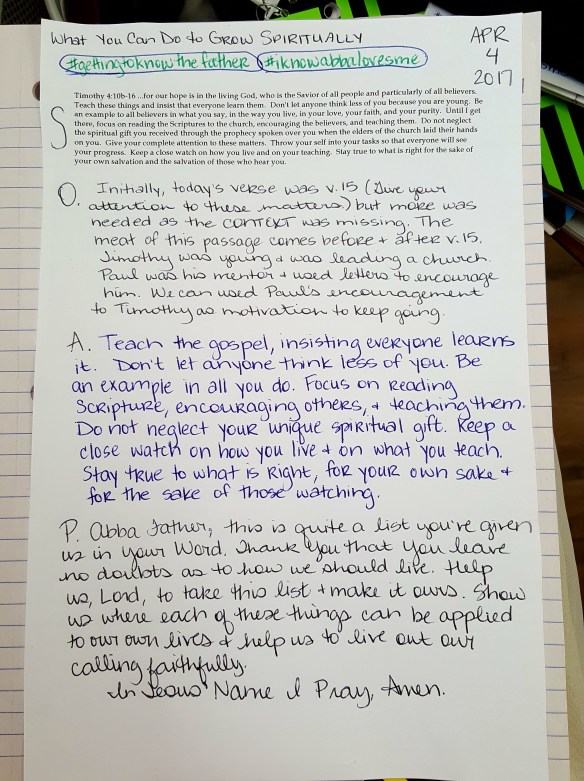 What You Can Do to Grow Spiritually
#gettingtoknowthefather #iknowabbalovesme
APR
4
2017
S
Timothy 4:10b-16 ...for our hope is in the living God, who is the Savior of all people and particularly of all believers.
Teach these things and insist that everyone learn them. Don't let anyone think less of you because you are young. Be
an example to all believers in what you say, in the way you live, in your love, your faith, and your purity. Until I get
there, focus on reading the Scriptures to the church, encouraging the believers, and teaching them. Do not neglect
the spiritual gift you received through the prophecy spoken over you when the elders of the church laid their hands
on you. Give your complete attention to these matters. Throw your self into your tasks so that everyone will see
your progress. Keep a close watch on how you live and on your teaching. Stay true to what is right for the sake of
your own salvation and the salvation of those who hear you.
O. Initially, today's verse was v.15 (Give your
attention to these matters.) but more was
needed as the CONTEXT was missing. The
meat of this passage comes before + after v.15.
Timothy was young + was leading a church.
Paul was his mentor + used letters to encourage
him. We can used Paul's encouragement
to Timothy as motivation to keep going.
A. Teach the gospel, insisting everyone learns
it. Don't let anyone think less of you. Be
an example in all you do. Focus on Reading
Scripture, encouraging others, + teaching them.
Do not neglect your unique spiritual gift. Keep a
close watch on how you live + on what you teach.
Stay true to what is Right, for your own sake +
for the sake of those watching.
P. Abba Father, this is quite a list you've given
us in your Word. Thank You that You leave
no doubts as to how we should live. Help
us, Lord, to take this list + make it ours. Show
us where each of these things can be applied
to our own lives + help us to live out our
calling faithfully.
In Jesus' Name I Pray, Amen.